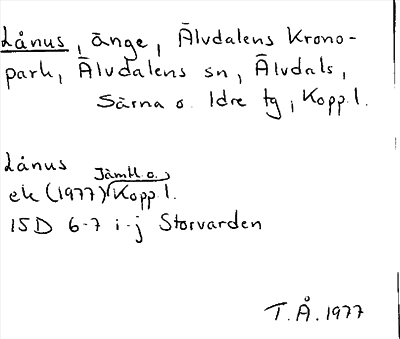 Lånus, änge, Älvdalens Krono-
park, Älvdalens sn, Älvdals,
Särna o. Idre tg, Kopp.l.
Lånus
Jämtl. o.
ek (1977) Kopp.l.
15D 6-7 i-j Storvarden
T.Å. 1977